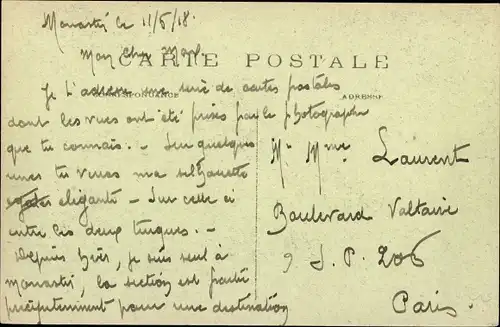 Monastir le 11/5/18.
Mon cher
CARTE POSTALE
Je t'adresse une série de cartes postales
CORRESPONDANCE
ADRESSE
dont les vues ont été prises par le photographe
que tu connais. - Sur quelques
unes tu verras ma silhouette
élégante - Sur celle ci
entre les deux turques. -
Depuis hier, je suis seul à
Monastir, la section est partie
précipitemment pour une destination
Mr Mme Laurent
Boulevard Voltaire
206
Paris.